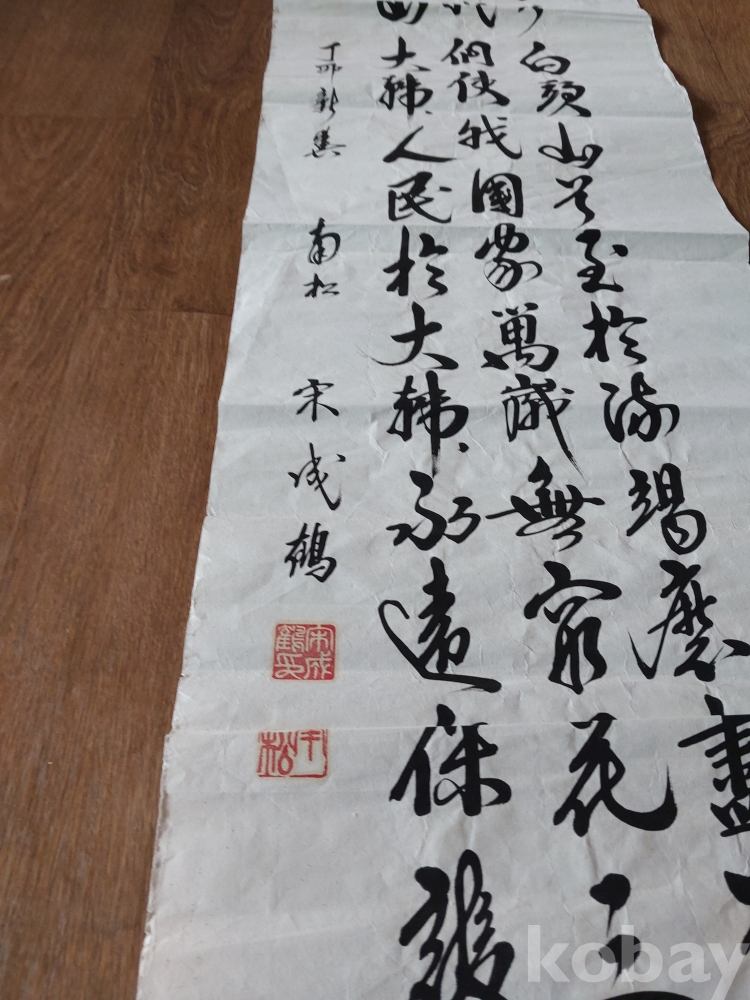 白頭山兮至於竭磨盡
使我國家萬歲無窮花三
大韓人民於大韓永遠保護
丁卯新 南松 宋成鶴
宋成鶴印
松
kobay